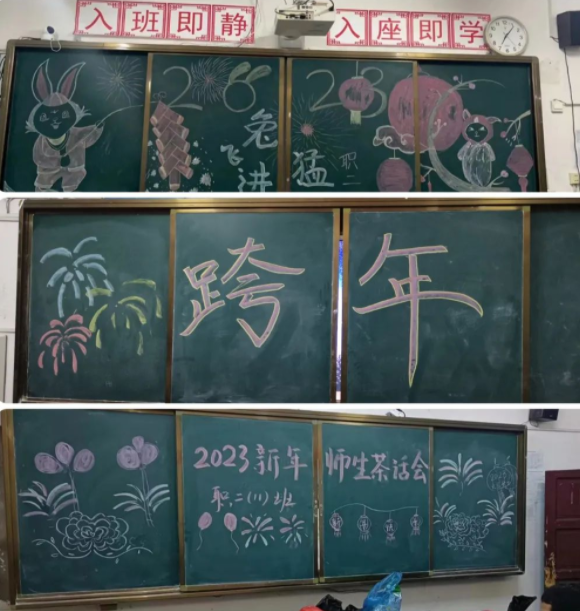 入班即静
入座即学
兔
飞
进
猛
职
二
跨年
2023新年
师生茶话会
职二(11)班